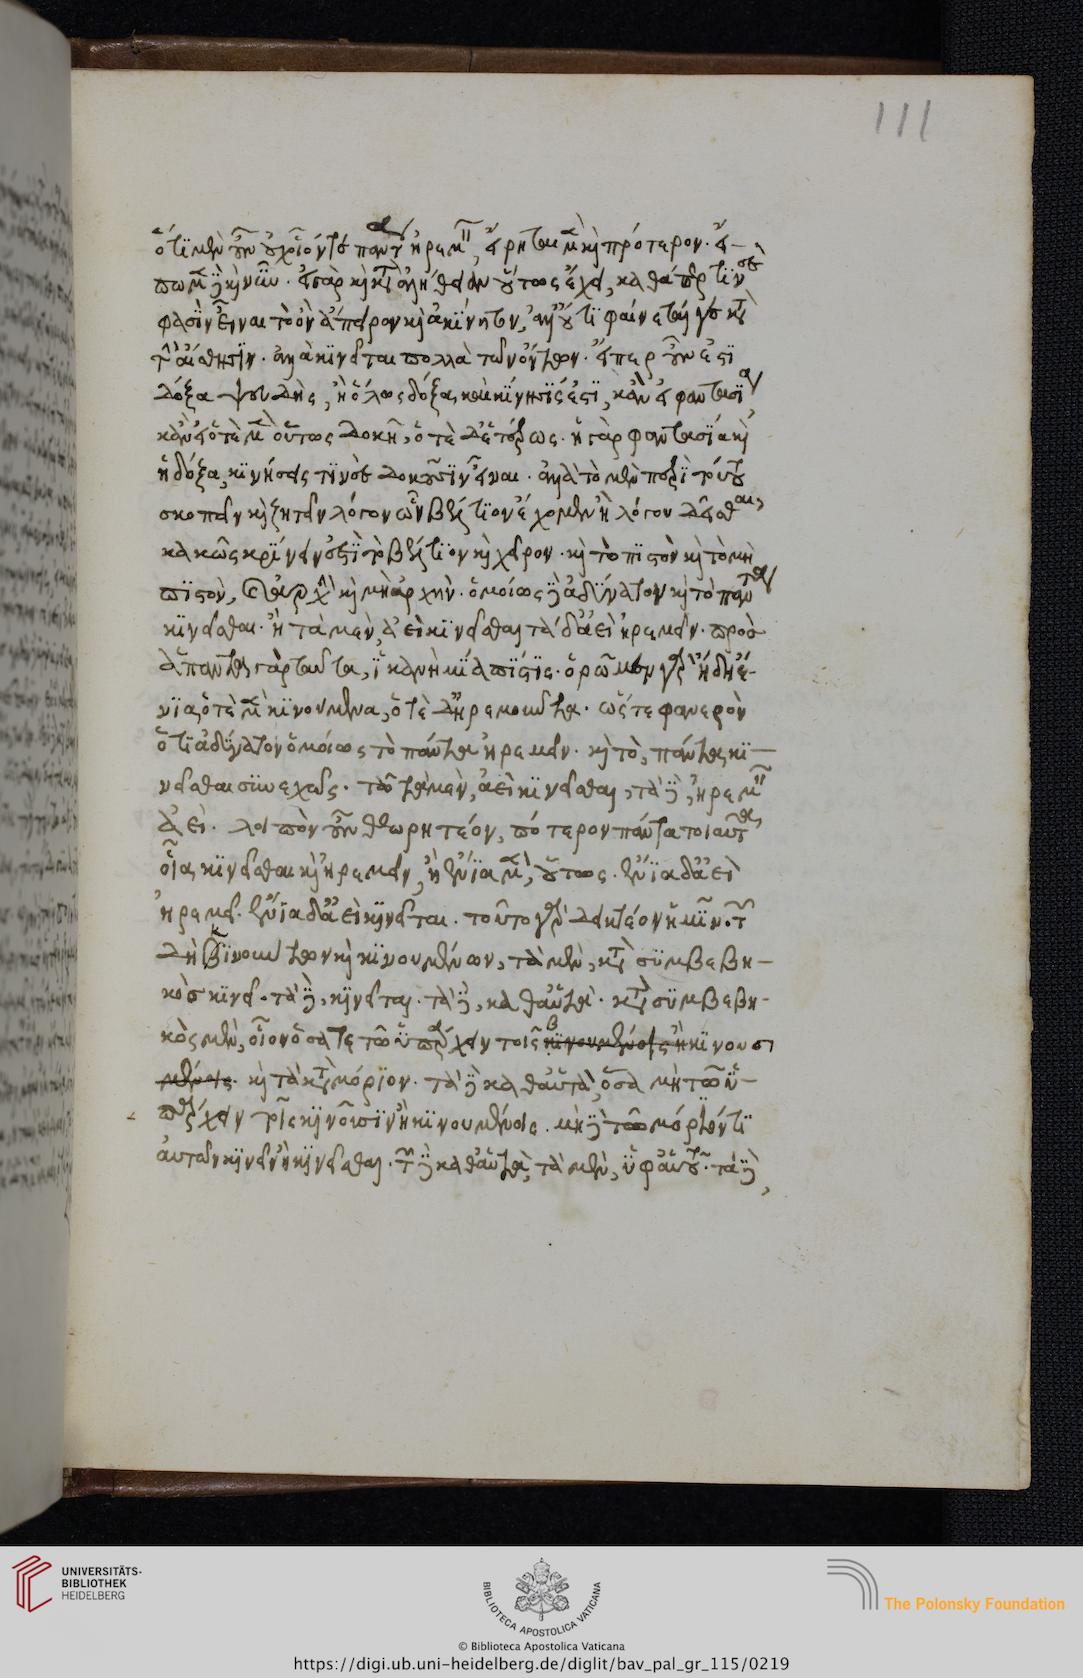 111
ὅτι μὲν οὖν οὐχ οἷόν τε πάντα ἠρεμεῖν, εἴρηται μὲν καὶ πρότερον. εἴ-
πωμεν δὲ καὶ νῦν. εἰ γὰρ καὶ κατὰ ἀλήθειαν οὕτως ἔχει, καθάπερ τινές
φασιν εἶναι τὸ ὂν ἄπειρον καὶ ἀκίνητον, ἀλλ' οὔτι φαίνεταί γε κατὰ
τὴν αἴσθησιν. ἀλλὰ κινεῖται πολλὰ τῶν ὄντων. εἴπερ οὖν ἐστι
δόξα ψευδὴς, ἢ ὅλως δόξα, καὶ κίνησίς ἐστι, κἂν εἰ φαντασία
κἂν εἰ ὁτὲ μὲν οὕτως δοκεῖ, ὁτὲ δὲ ἑτέρως. ἡ γὰρ φαντασία καὶ
ἡ δόξα, κινήσεις τινὲς δοκοῦσιν εἶναι. ἀλλὰ τὸ μὲν περὶ τούτου
σκοπεῖν καὶ ζητεῖν λόγον ὧν βέλτιον ἔχομεν ἢ λόγου δεῖσθαι,
κακῶς κρίνειν ἐστὶ τὸ βέλτιον καὶ χεῖρον. καὶ τὸ πιστὸν καὶ τὸ μὴ
πιστὸν, καὶ ἀρχὴν καὶ μὴ ἀρχήν. ὁμοίως δὲ ἀδύνατον καὶ τὸ πάντα
κινεῖσθαι. ἢ τὰ μὲν, ἀεὶ κινεῖσθαι τὰ δ' ἀεὶ ἠρεμεῖν. πρὸς
ἅπαντα γὰρ ταῦτα, ἱκανὴ μία πίστις. ὁρῶμεν γὰρ ἤδη ἔ-
νια, ὁτὲ μὲν κινούμενα, ὁτὲ δ' ἠρεμοῦντα. ὥστε φανερὸν
ὅτι ἀδύνατον ὁμοίως τὸ πάντα ἠρεμεῖν. καὶ τὸ, πάντα κι-
νεῖσθαι συνεχῶς. τῷ τὰ μὲν, ἀεὶ κινεῖσθαι, τὰ δὲ, ἠρεμεῖν
ἀεί. λοιπὸν οὖν θεωρητέον, πότερον πάντα τοιαῦτα
οἷα κινεῖσθαι καὶ ἠρεμεῖν, ἢ ἔνια μὲν, οὕτως. ἔνια δ' ἀεὶ
ἠρεμεῖ. ἔνια δ' ἀεὶ κινεῖται. τοῦτο γὰρ δεικτέον ἡμῖν. τῶν
δὴ κινούντων καὶ κινουμένων, τὰ μὲν, κατὰ συμβεβη-
κὸς κινεῖ. τὰ δὲ, κινεῖται. τὰ δὲ, καθ' αὑτά. κατὰ συμβεβη-
κὸς μὲν, οἷον ὅσα τε τῷ ὑπάρχειν τοῖς κινουμένοις ἢ κινουσι
μένοις. καὶ τὰ κατὰ μόριον. τὰ δὲ καθ' αὑτὰ, ὅσα μὴ τῷ ὑ-
πάρχειν τοῖς κινοῦσιν ἢ κινουμένοις. μὴ δὲ τῷ μόριόν τι
αὐτῶν κινεῖν ἢ κινεῖσθαι. τῶν δὲ καθ' αὑτὰ, τὰ μὲν, ὑφ' αὑτοῦ. τὰ δὲ,
UNIVERSITÄTS-
BIBLIOTHEK
HEIDELBERG
BIBLIOTECA APOSTOLICA VATICANA
The Polonsky Foundation
© Biblioteca Apostolica Vaticana
https://digi.ub.uni-heidelberg.de/diglit/bav_pal_gr_115/0219